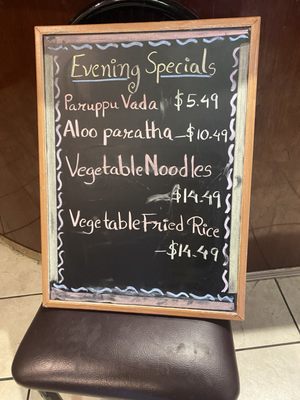 Evening Specials
Paruppu Vada $5.49
Aloo paratha - $10.49
Vegetable Noodles
- $14.49
Vegetable Fried Rice
- $14.49